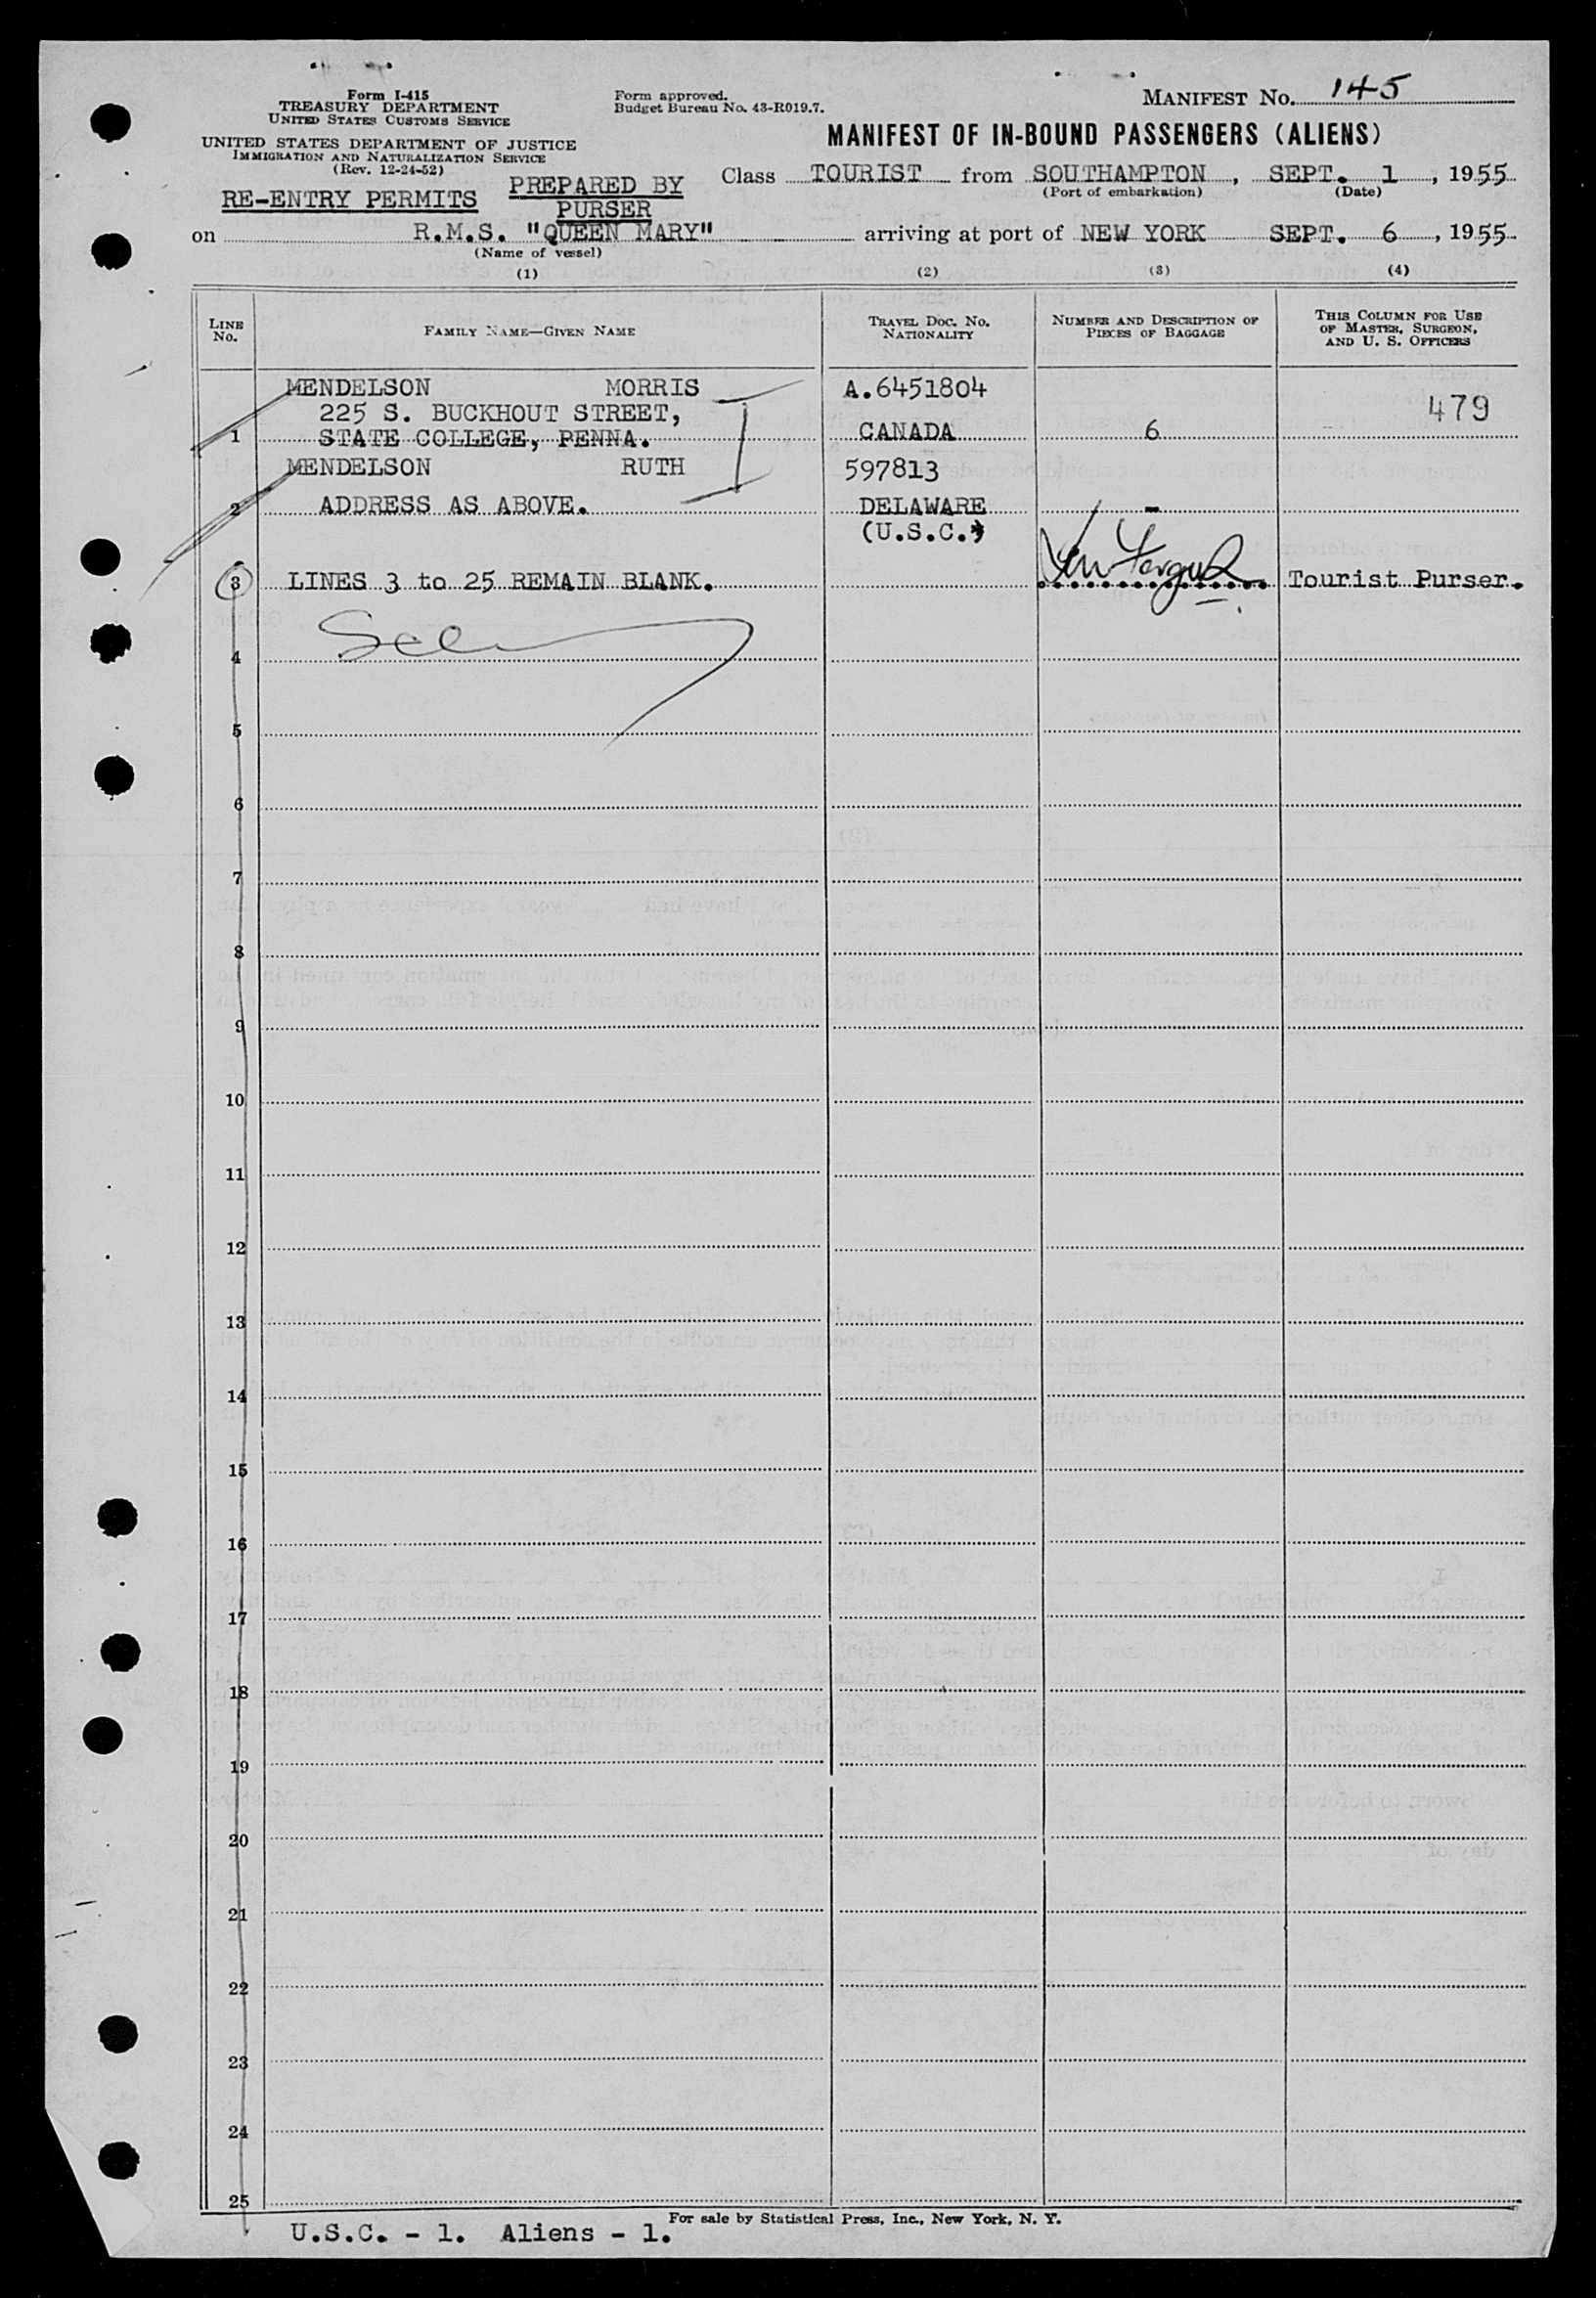 Form I-415
TREASURY DEPARTMENT
UNITED STATES CUSTOMS SERVICE
UNITED STATES DEPARTMENT OF JUSTICE
IMMIGRATION AND NATURALIZATION SERVICE
(Rev. 12-24-52)
Form approved.
Budget Bureau No. 43-R019.7.
MANIFEST No. 145
MANIFEST OF IN-BOUND PASSENGERS (ALIENS)
RE-ENTRY PERMITS
PREPARED BY
PURSER
Class TOURIST from SOUTHAMPTON, SEPT. 1, 1955
(Port of embarkation) (Date)
on R.M.S. "QUEEN MARY" arriving at port of NEW YORK SEPT. 6, 1955
(Name of vessel)
(1) (2) (3) (4)
LINE No.
FAMILY NAME—GIVEN NAME
TRAVEL DOC. NO.
NATIONALITY
NUMBER AND DESCRIPTION OF
PIECES OF BAGGAGE
THIS COLUMN FOR USE
OF MASTER, SURGEON,
AND U. S. OFFICERS
MENDELSON MORRIS A.6451804
225 S. BUCKHOUT STREET, 479
1 STATE COLLEGE, PENNA. CANADA 6
MENDELSON RUTH 597813
2 ADDRESS AS ABOVE. DELAWARE -
(U.S.C.)
3 LINES 3 to 25 REMAIN BLANK. Tourist Purser.
4
5
6
7
8
9
10
11
12
13
14
15
16
17
18
19
20
21
22
23
24
25
For sale by Statistical Press, Inc., New York, N. Y.
U.S.C. - 1. Aliens - 1.